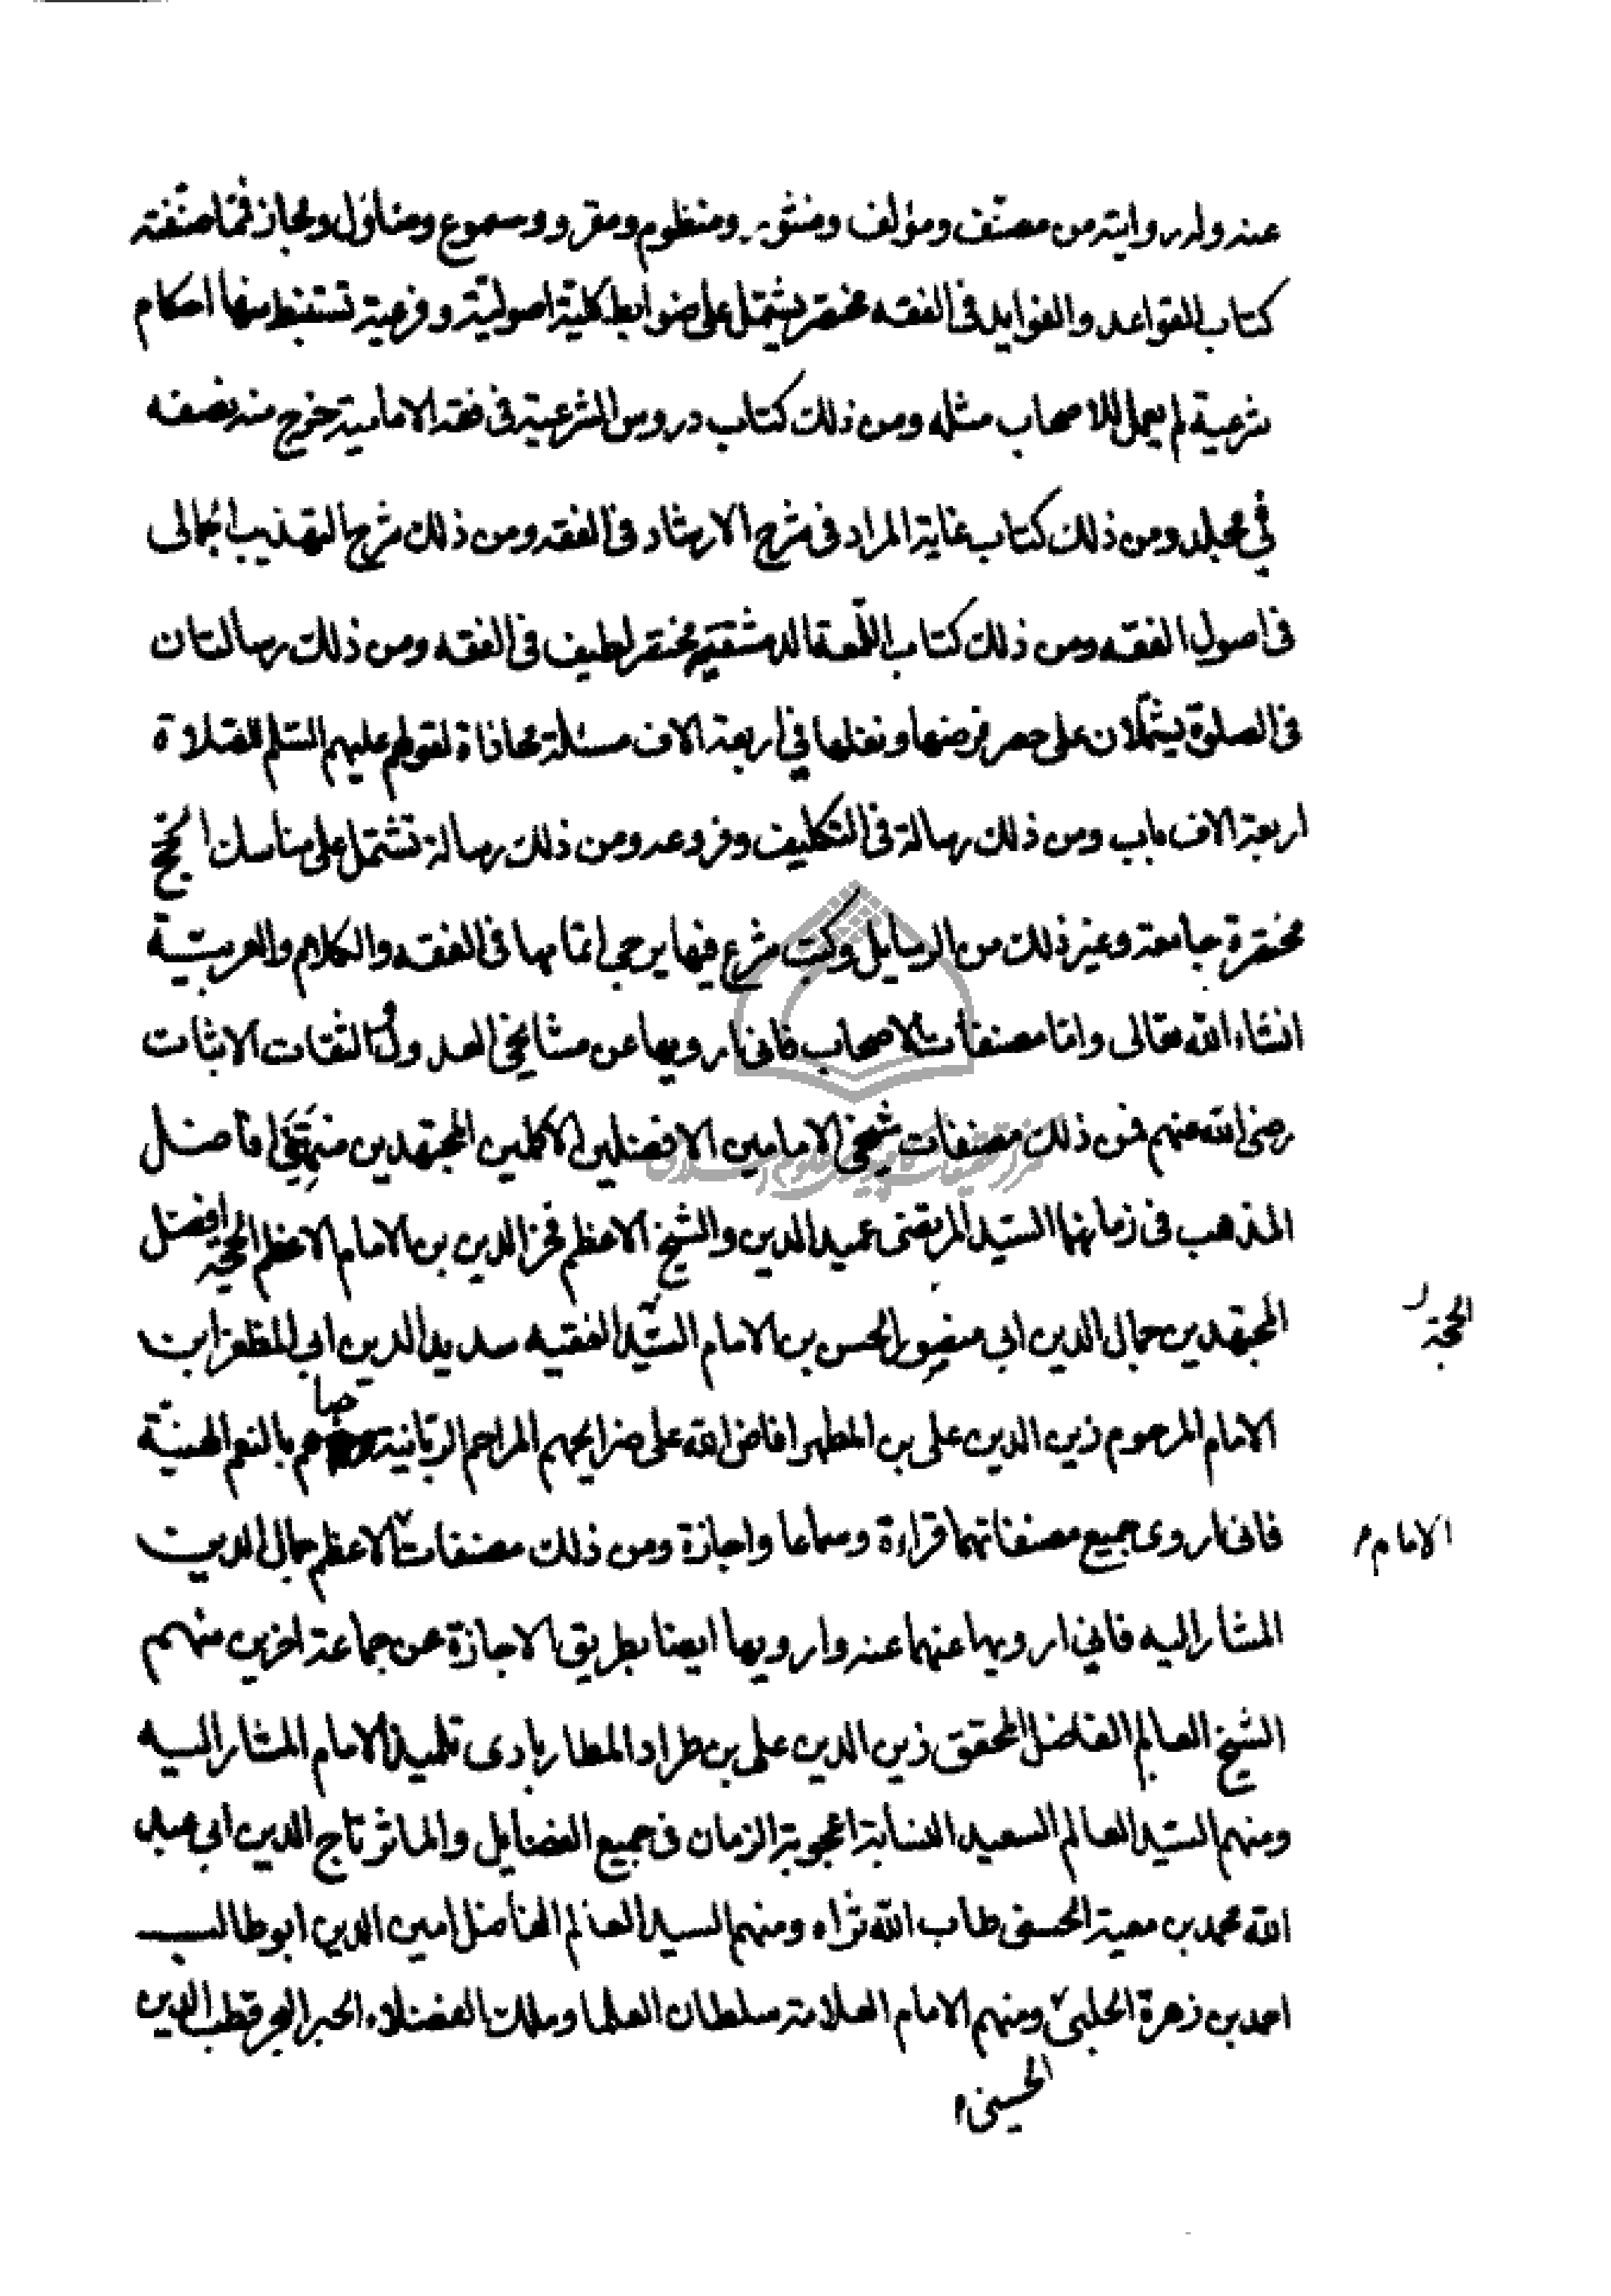 عنه وله روايته من مصنّف ومؤلف ومنثور ومنظوم ومقرو ومسموع ومناوَل ومجاز فمّا صنّفته
كتاب القواعد والفوايد فى الفقه مختصر يشتمل على ضوابط كلية اصوليّة وفرعية تستنبط منها احكام
شرعية لم يعمل للاصحاب مثله ومن ذلك كتاب دروس الشرعية فى فقه الامامية خرج منه نصفه
فى مجلد ومن ذلك كتاب غاية المراد فى شرح الارشاد فى الفقه ومن ذلك شرح التهذيب الجمالى
فى اصول الفقه ومن ذلك كتاب اللّمعة الدمشقية مختصر لطيف فى الفقه ومن ذلك رسالتان
فى الصلوة يشتملان على حصر فرضها ونفلها في اربعة الاف مسئلة محاذاة لقولهم عليهم السّلم للصّلاة
اربعة الاف باب ومن ذلك رسالة فى التكليف وفروعه ومن ذلك رسالة تشتمل على مناسك الحجّ
مختصرة جامعة وغير ذلك من الرسايل وكتب شرع فيها يرجى اتمامها فى الفقه والكلام والعربيّة
انشاء الله تعالى وامّا مصنفات الاصحاب فانى ارويها عن مشايخى العدول والثقات الاثبات
رضى الله عنهم فمن ذلك مصنفات شيخى الامامين الافضلين الاكملين المجتهدين منتهى افاضل
المذهب فى زمانهما السيّد المرتضى عميد الدين والشيخ الاعظم فخر الدين بن الامام الاعظم الحجّة افضل
المجتهدين جمال الدين ابى منصور الحسن بن الامام السيّد الفقيه سديد الدين ابى المظفر ابن
الحجة
الامام المرحوم زين الدين على بن المطهر افاض الله على ضرايحهم المراحم الربّانية وحباهم بالنعم الهنيّة
فانى اروى جميع مصنفاتهما قراءة وسماعا واجازة ومن ذلك مصنفات الاعظم جمال الدين
الامام م
المشار اليه فاني ارويها عنهما عنه وارويها ايضا بطريق الاجازة عن جماعة اخرين منهم
الشيخ العالم الفاضل المحقق زين الدين على بن طراد المطاربادى تلميذ الامام المشار اليه
ومنهم السيّد العالم السعيد النسابة اعجوبة الزمان فى جميع الفضايل والماثر تاج الدين ابى عبد
الله محمد بن معية الحسنى طاب الله ثراه ومنهم السيد العالم الفاضل امين الدين ابو طالب
احمد بن زهرة الحلبىّ ومنهم الامام العلامة سلطان العلما وملك الفضلاء الحبر البحر قطب الدين
الحسينى